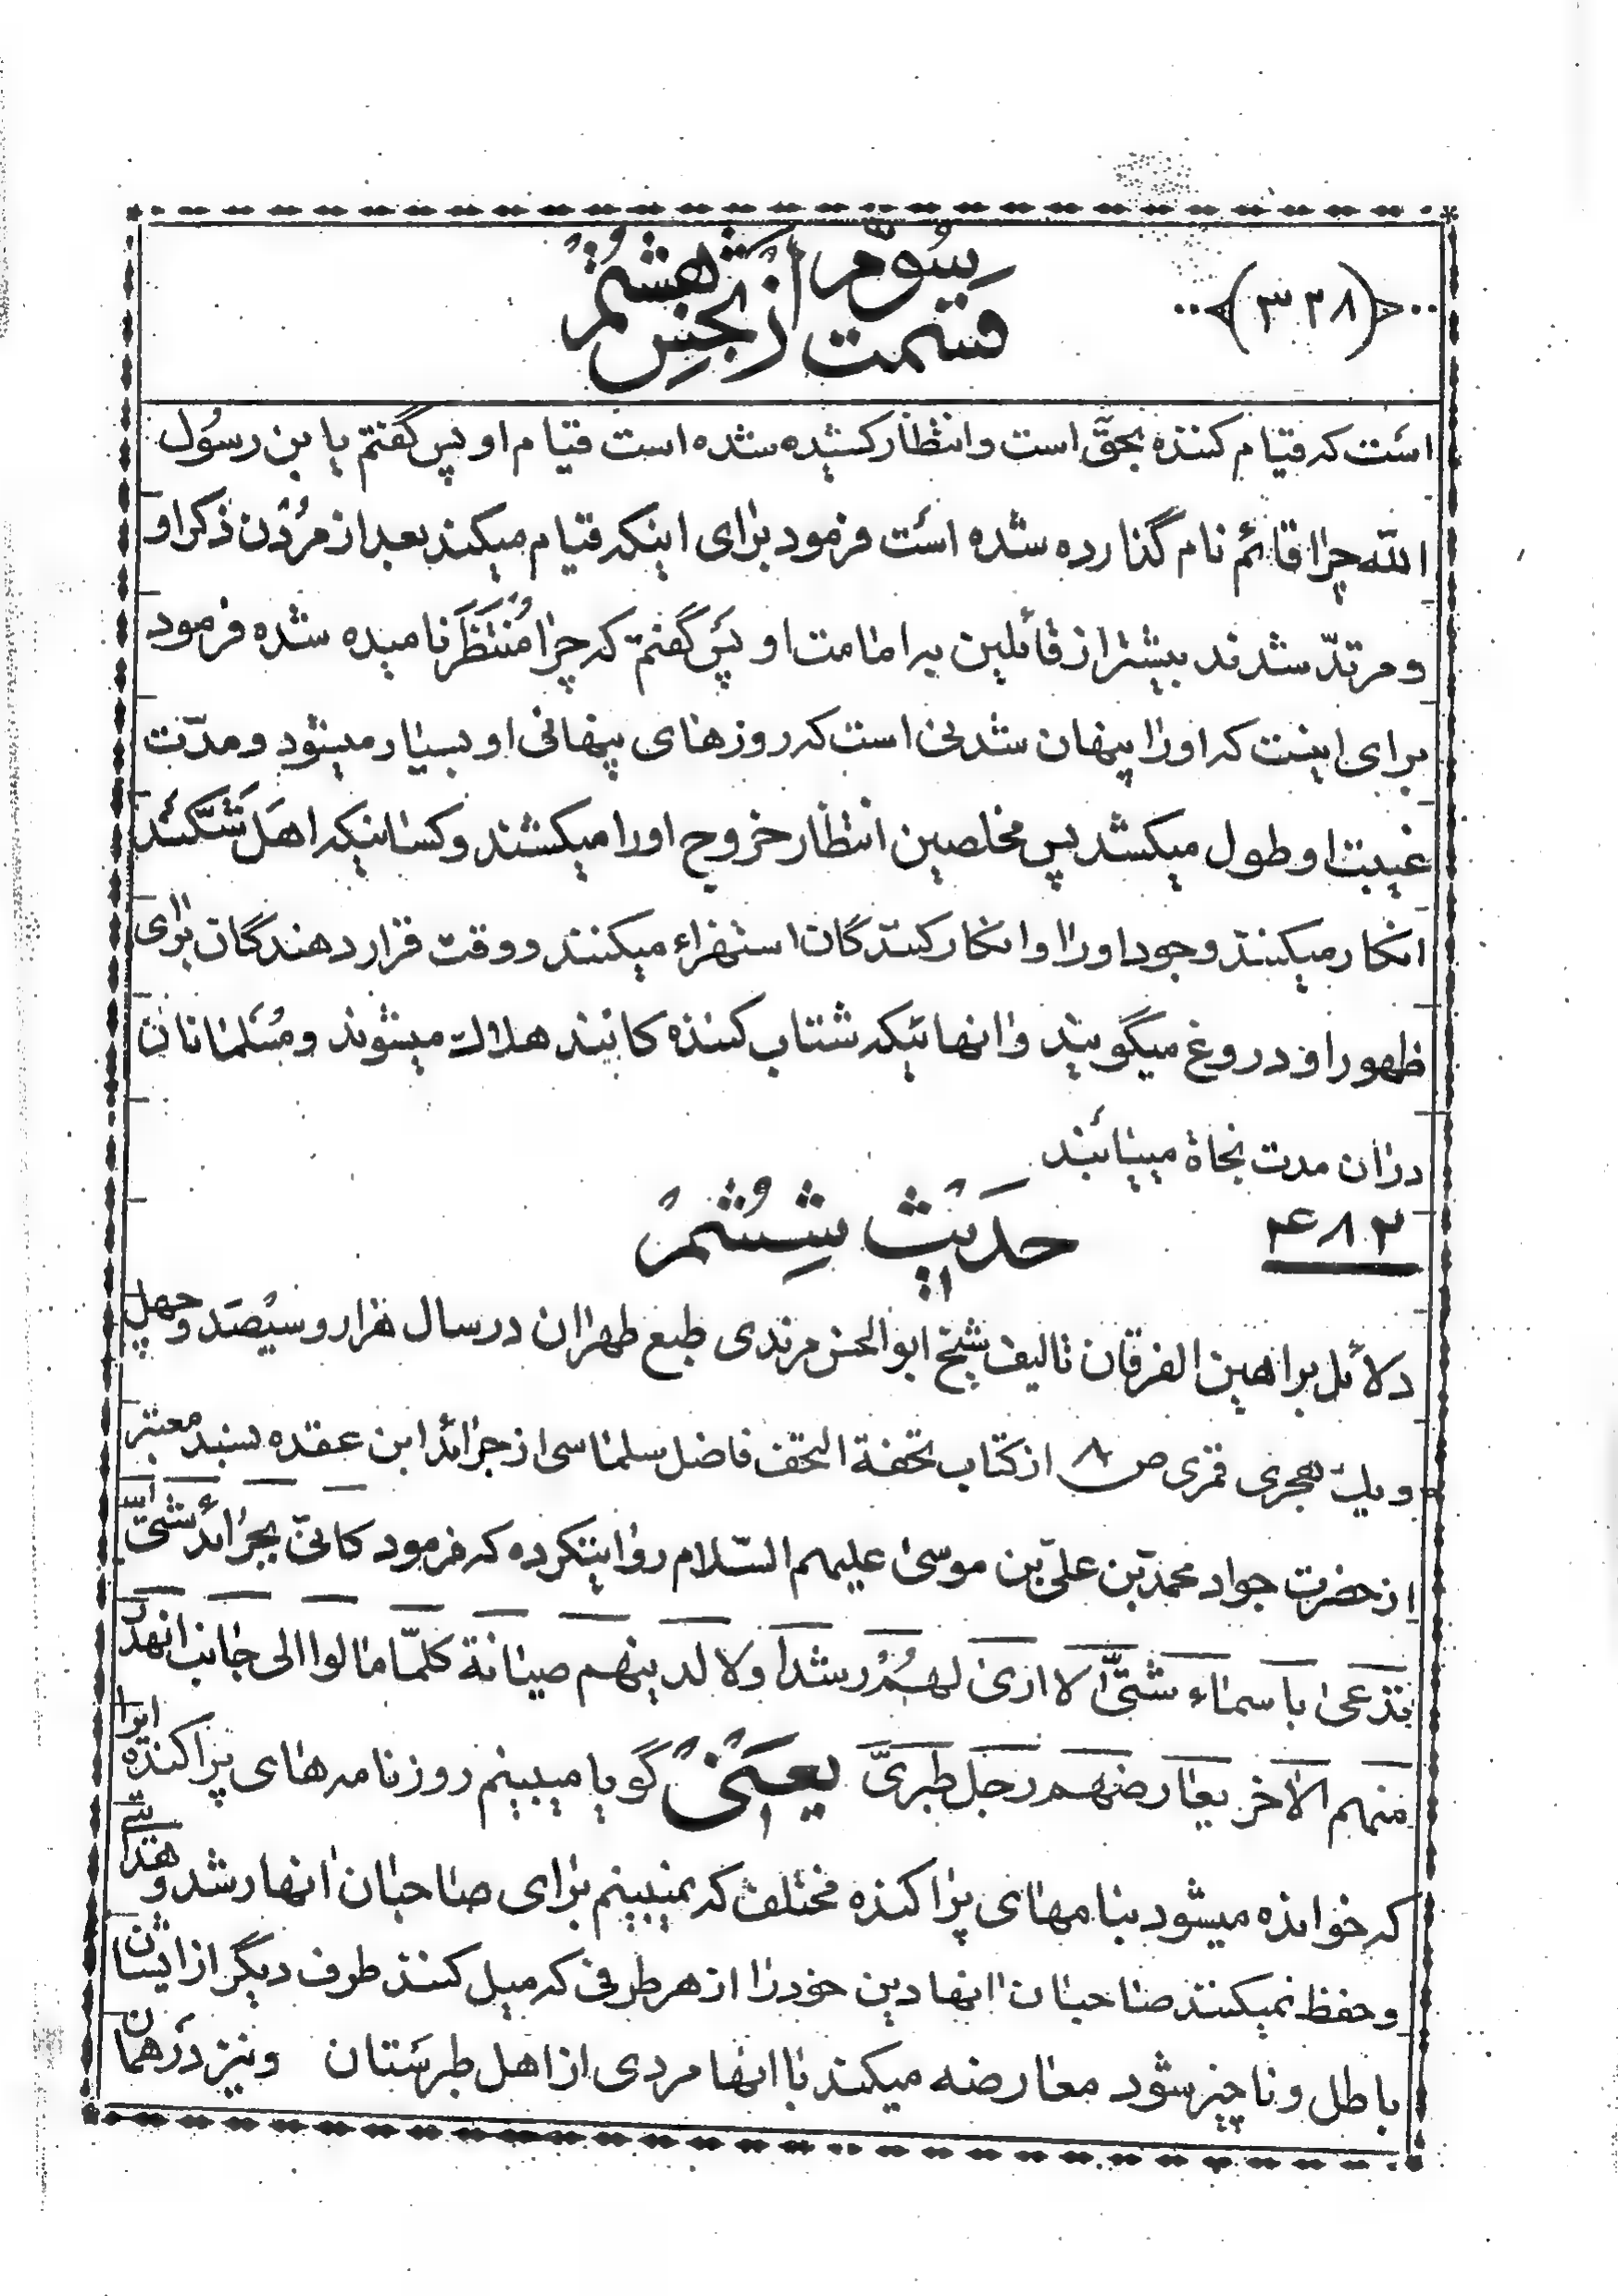 (۳۳۸)
قسمت سوّم از بخش هشتم
است که قیام کننده بحقّ است و انتظار کشیده شده است قیام او پس گفتم یابن رسول
الله چرا قائم نام گذارده شده است فرمود برای اینکه قیام میکند بعد از مردن ذکر او
و مرتدّ شدند بیشتر از قائلین به امامت او پس گفتم که چرا مُنتَظَر نامیده شده فرمود
برای اینست که او را پنهان شدنی است که روزهای پنهانی او بسیار میشود و مدّت
غیبت او طول میکشد پس مخلصین انتظار خروج او را میکشند و کسانیکه اهل شَکّند
انکار میکنند وجود او را و انکار کنندگان استهزاء میکنند و وقت قرار دهندگان برای
ظهور او دروغ میگویند و انهائیکه شتاب کننده کانیند هلاک میشوند و مسلمانان
در ان مدت نجاة میبابند
۴۸۲ حدیث ششم
دلائل براهین الفرقان تالیف شیخ ابوالحسن مرندی طبع طهران در سال هزار و سیصد و چهل
و یک هجری قمری ص ۸ از کتاب تحفة التحف فاضل سلماسی از جرائد ابن عقده بسند معتبر
از حضرت جواد محمد بن علیّ بن موسی علیهم السّلام روایتکرده که فرمود کانّی بجرائد شتّی
تدعی باسماء شتّی لا اری لهم رشدا ولا لدینهم صیانة کلمّا مالوا الی جانب انهدّ
منهم الاخر یعارضهم رجل طبریّ یعنی گویا میبینم روزنامه های پراکنده
که خوانده میشود بنامهای پراکنده مختلف که نمیبینم برای صاحبان انها رشد و
و حفظ نمیکنند صاحبان انها دین خود را از هر طرفی که میل کنند طرف دیگر از ایشان
باطل و ناچیز شود معارضه میکند با انها مردی از اهل طبرستان و نیز در همان